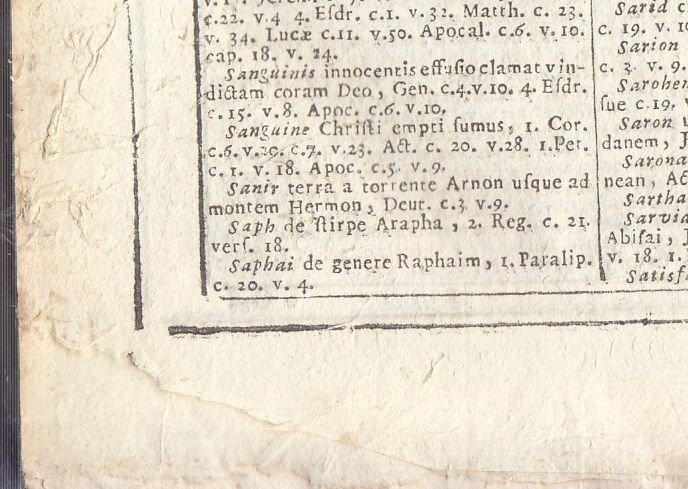 c.22. v.4 4. Eſdr. c.1. v. 32. Matth. c. 23.
v. 34. Lucæ c.11. v.50. Apocal. c.6. v.10.
cap. 18. v. 24.
Sanguinis innocentis effuſio clamat vin-
dictam coram Deo, Gen. c.4.v.10. 4. Eſdr.
c.15. v.8. Apoc. c.6. v.10.
Sanguine Chriſti empti ſumus, 1. Cor.
c.6. v.20. c.7. v.23. Act. c. 20. v.28. 1.Pet.
c. 1. v. 18. Apoc. c.5. v.9.
Sanir terra a torrente Arnon uſque ad
montem Hermon, Deut. c.3. v.9.
Saph de ſtirpe Arapha, 2. Reg. c. 21.
verſ. 18.
Saphai de genere Raphaim, 1. Paralip.
c. 20. v. 4.
Sarid c
c. 19. v. 10
Sarion
c. 3. v. 9.
Sarohen
ſue c.19,
Saron
danem, J
Sarona
nean, Ac
Sartha
Sarvia
Abiſai, J
v. 18. 1.
Satisf